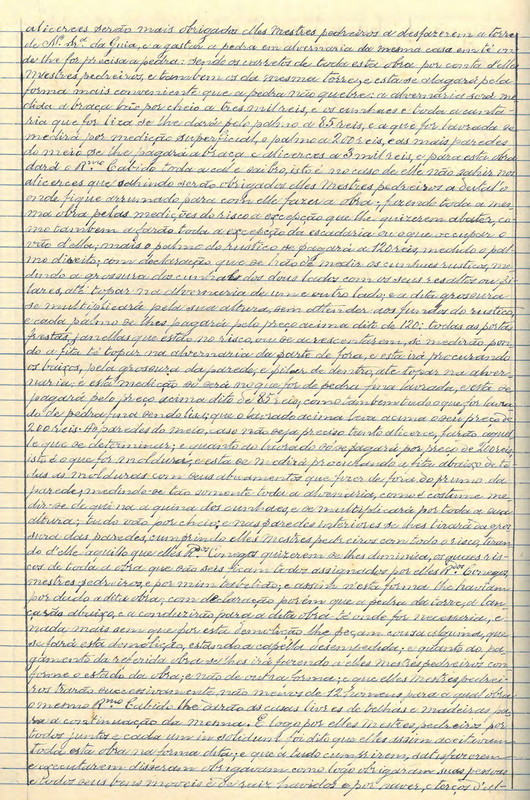 alicerces serão mais obrigados elles Mestres pedreiros a desfazerem a torre
de N. Srª. da Guia, e a gastar a pedra em alvernaria da mesma casa em té on-
de lhe for precisa a pedra: sendo os carretos de toda esta obra por conta d'elles
Mestres pedreiros, e tambem os da mesma torre, e esta se alagará pela
forma mais conveniente que a pedra não quebre: a alvernaria será me-
dida a braça vão por cheio a tres mil reis, e os cunhaes e toda a canta-
ria que for liza se lhe dará pelo palmo a 85 reis, e a que for lavrada se
medirá por medição superficial, o palmo a 200 reis, e as mais paredes
do meio se lhe pagará a braça e alicerces a 3 mil reis, e para esta obra
dará o Rmo Cabido toda a cal e saibro, isto é no caso de elle não sahir nos
alicerces que sahindo serão obrigados elles Mestres pedreiros a deital-o
onde fique arrumado, para com elle fazer a obra; fazendo toda a mes-
ma obra pelas medições do risco a excepção que lhe quizerem abater, co-
mo tambem a farão toda a excepção da escadaria ou o que occupar o
vão d'ella; mais o palmo do rustico se pagará a 120 reis, medido o pal-
mo direito; com declaração que se hão de medir os cunhaes rusticos, me-
dindo a grossura dos cunhaes dos dous lados com os seus resaltos ou pi-
lares, até topar na alvernaria de um e outro lado; e a dita grossura
se multiplicará pela sua altura, sem attender aos fundos do rustico,
e cada palmo se lhes pagará pelo preço acima dito de 120: todas as portas
frestas, janellas que estão no risco, ou se accrescentarem, se medirão, pon-
do a fita té topar na alvernaria da parte de fora, e esta irá procurando
os baixos, pela grossura da parede, e pilar de dentro, até topar na alver-
naria: e esta medição só será no que for de pedra fina lavrada, e esta se
pagará pelo preço acima dito de 85 reis, como tambem tudo o que for lavra-
do de pedra fina sendo liso; que o lavrado acima leva acima o seu preço de
200 reis. As paredes do meio, caso não seja preciso tanto alicerce, farão aquel-
le que se determinar; e quanto ao lavrado só se pagará por preço de 200 reis,
isto é o que for moldura; e esta se medirá procurando a fita abaixo de to-
das as molduras com seus aboamentos que fizer de fora do prumo da
parede, medindo-se tão somente toda a alvernaria, como é costume me-
dir-se de quina a quina dos cunhaes, e se multiplicará por toda a sua
altura; tudo vão por cheio; e nas paredes interiores se lhes tirará as gros-
suras das paredes, cumprindo elles Mestres pedreiros com todo o risco, tiran-
do d'elle aquillo que elles Rdos Conegos quizerem se lhes diminua, os quaes ris-
cos de toda a obra que são seis ficam todos assignados por elles Rdos Conegos,
mestres pedreiros, e por mim tabellião; e assim n'esta forma lhe haviam
por dado a dita obra, com declaração porém que a pedra da torre, a lan-
çarão abaixo, e a conduzirão para a dita obra té onde for necessaria, e
nada mais sem que por esta demolição lhe peçam cousa alguma, que
se fará esta demolição, estando a capella desempedida; e quanto ao pa-
gamento da referida obra se lhes irá fazendo a elles mestres pedreiros con-
forme o estado da obra, e não de outra forma; e que elles Mestres pedrei-
ros trarão successivamente não menos de 12 homens para a qual obra
o mesmo Rmo Cabido lhe darão as casas livres de telhas e madeiras pa-
ra a continuação da mesma. E logo por elles Mestres pedreiros por
todos juntos e cada um in solidum foi dito que elles assim acceitavam
toda esta obra na forma dita; e que a tudo cumprirem, satisfazerem
e executarem disseram obrigavam como logo obrigaram suas pessoas
e todos seus bens moveis e de raiz havidos e por haver, e terços d'al-